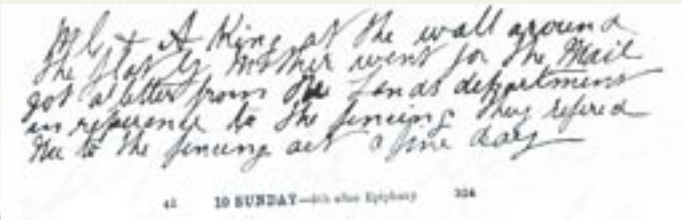 Me & A King at the wall around
the flat & Mother went for the Mail
got a letter from the Lands department
in reference to the fencing they refered
me to the fencing act a fine day
41 10 SUNDAY—5th after Epiphany 324